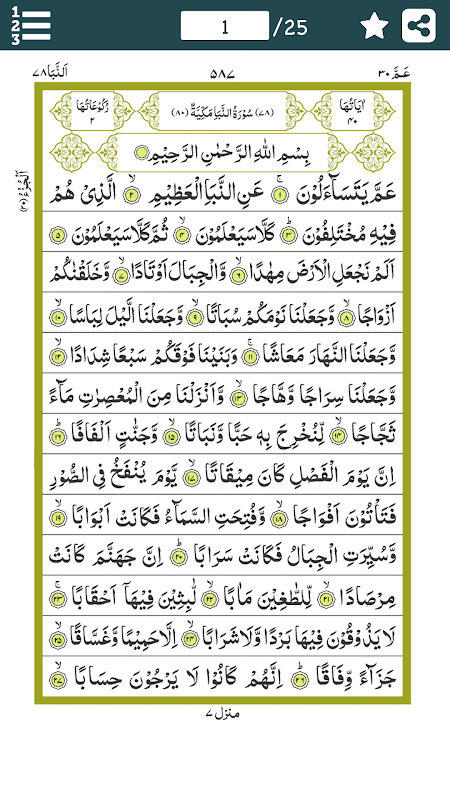 1
2
3
1 /25
اَلنَّبَا ٧٨ ٥٨٧ عَمَّ ٣٠
اٰیَاتُهَا ٤٠ (٧٨) سُوْرَةُ النَّبَاِ مَكِّیَّةٌ (٨٠) رُكُوْعَاتُهَا ٢
بِسْمِ اللّٰهِ الرَّحْمٰنِ الرَّحِیْمِ
عَمَّ یَتَسَآءَلُوْنَ ١ عَنِ النَّبَاِ الْعَظِیْمِ ٢ الَّذِیْ هُمْ
فِیْهِ مُخْتَلِفُوْنَ ٣ كَلَّا سَیَعْلَمُوْنَ ٤ ثُمَّ كَلَّا سَیَعْلَمُوْنَ ٥
اَلَمْ نَجْعَلِ الْاَرْضَ مِهٰدًا ٦ وَّالْجِبَالَ اَوْتَادًا ٧ وَّخَلَقْنٰكُمْ
اَزْوَاجًا ٨ وَّجَعَلْنَا نَوْمَكُمْ سُبَاتًا ٩ وَّجَعَلْنَا الَّیْلَ لِبَاسًا ١٠
وَّجَعَلْنَا النَّهَارَ مَعَاشًا ١١ وَّبَنَیْنَا فَوْقَكُمْ سَبْعًا شِدَادًا ١٢
وَّجَعَلْنَا سِرَاجًا وَّهَّاجًا ١٣ وَّاَنْزَلْنَا مِنَ الْمُعْصِرٰتِ مَآءً
ثَجَّاجًا ١٤ لِّنُخْرِجَ بِهٖ حَبًّا وَّنَبَاتًا ١٥ وَّجَنّٰتٍ اَلْفَافًا ١٦
اِنَّ یَوْمَ الْفَصْلِ كَانَ مِیْقَاتًا ١٧ یَّوْمَ یُنْفَخُ فِی الصُّوْرِ
فَتَاْتُوْنَ اَفْوَاجًا ١٨ وَّفُتِحَتِ السَّمَآءُ فَكَانَتْ اَبْوَابًا ١٩
وَّسُیِّرَتِ الْجِبَالُ فَكَانَتْ سَرَابًا ٢٠ اِنَّ جَهَنَّمَ كَانَتْ
مِرْصَادًا ٢١ لِّلطّٰغِیْنَ مَاٰبًا ٢٢ لّٰبِثِیْنَ فِیْهَاۤ اَحْقَابًا ٢٣
لَا یَذُوْقُوْنَ فِیْهَا بَرْدًا وَّلَا شَرَابًا ٢٤ اِلَّا حَمِیْمًا وَّغَسَّاقًا ٢٥
جَزَآءً وِّفَاقًا ٢٦ اِنَّهُمْ كَانُوْا لَا یَرْجُوْنَ حِسَابًا ٢٧
منزل ٧
اَلْجُزْءُ (٣٠)